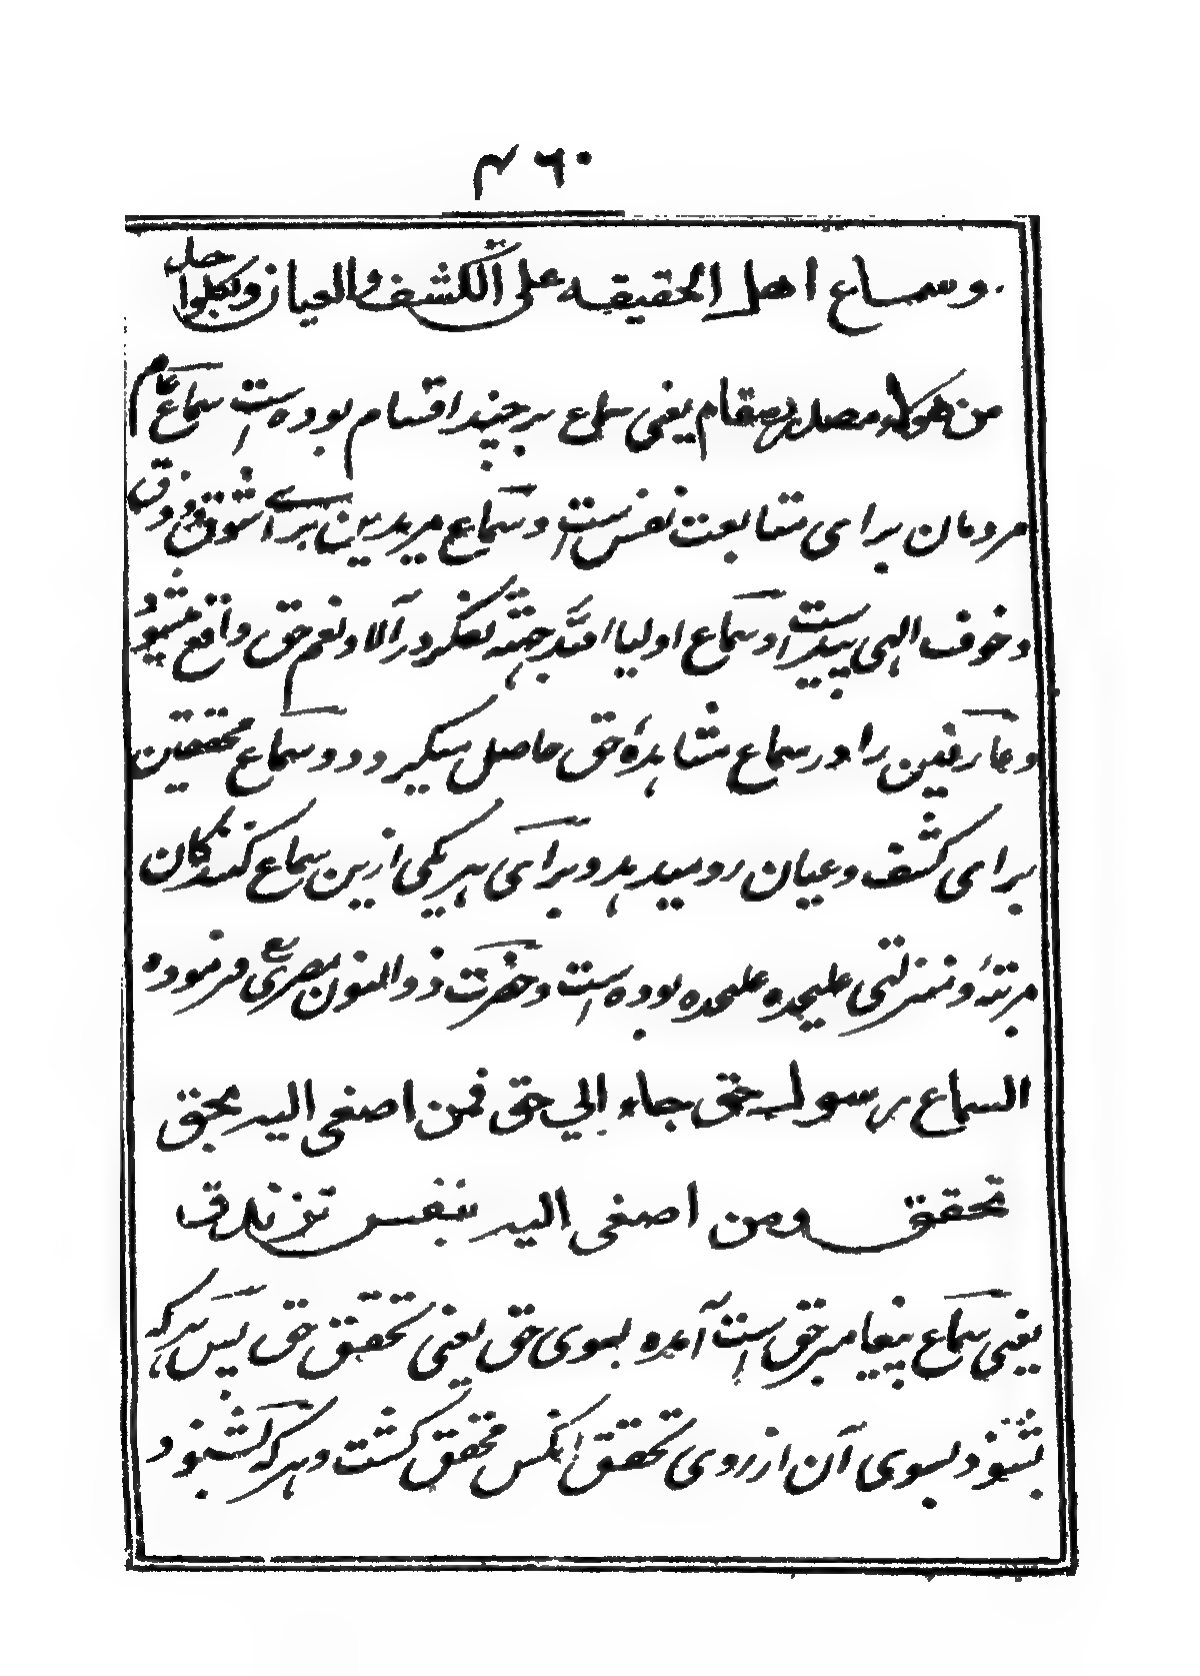 ۴۶۰
وسماع اهل الحقیقه علی الکشف والعیان ولکل واحد
من هولاء مصدر ومقام یعنی سماع بر چند اقسام بوده است سماع عام
مردمان برای متابعت نفس ست و سماع مریدین برای شوق و ذوق
و خوف الهی پیداست و سماع اولیا الله جهته تفکر در آلاء و نعم حق واقع میشود
و عارفین را در سماع مشاهدهٔ حق حاصل میگردد و سماع محققین
برای کشف و عیان رو میدهد و برای هر یکی ازین سماع کنندگان
مرتبهٔ و منزلتی علیحده علیحده بوده است و حضرت ذوالنون مصری رح فرموده
السماع رسول حق جاء الی حق فمن اصغی الیه بحق
تحقق ومن اصغی الیه بنفس تزندق
یعنی سماع پیغامبر حق است آمده بسوی حق یعنی تحقیق حق پس هر که
بشنود بسوی آن از روی تحقق آنکس محقق گشت و هر که بشنود